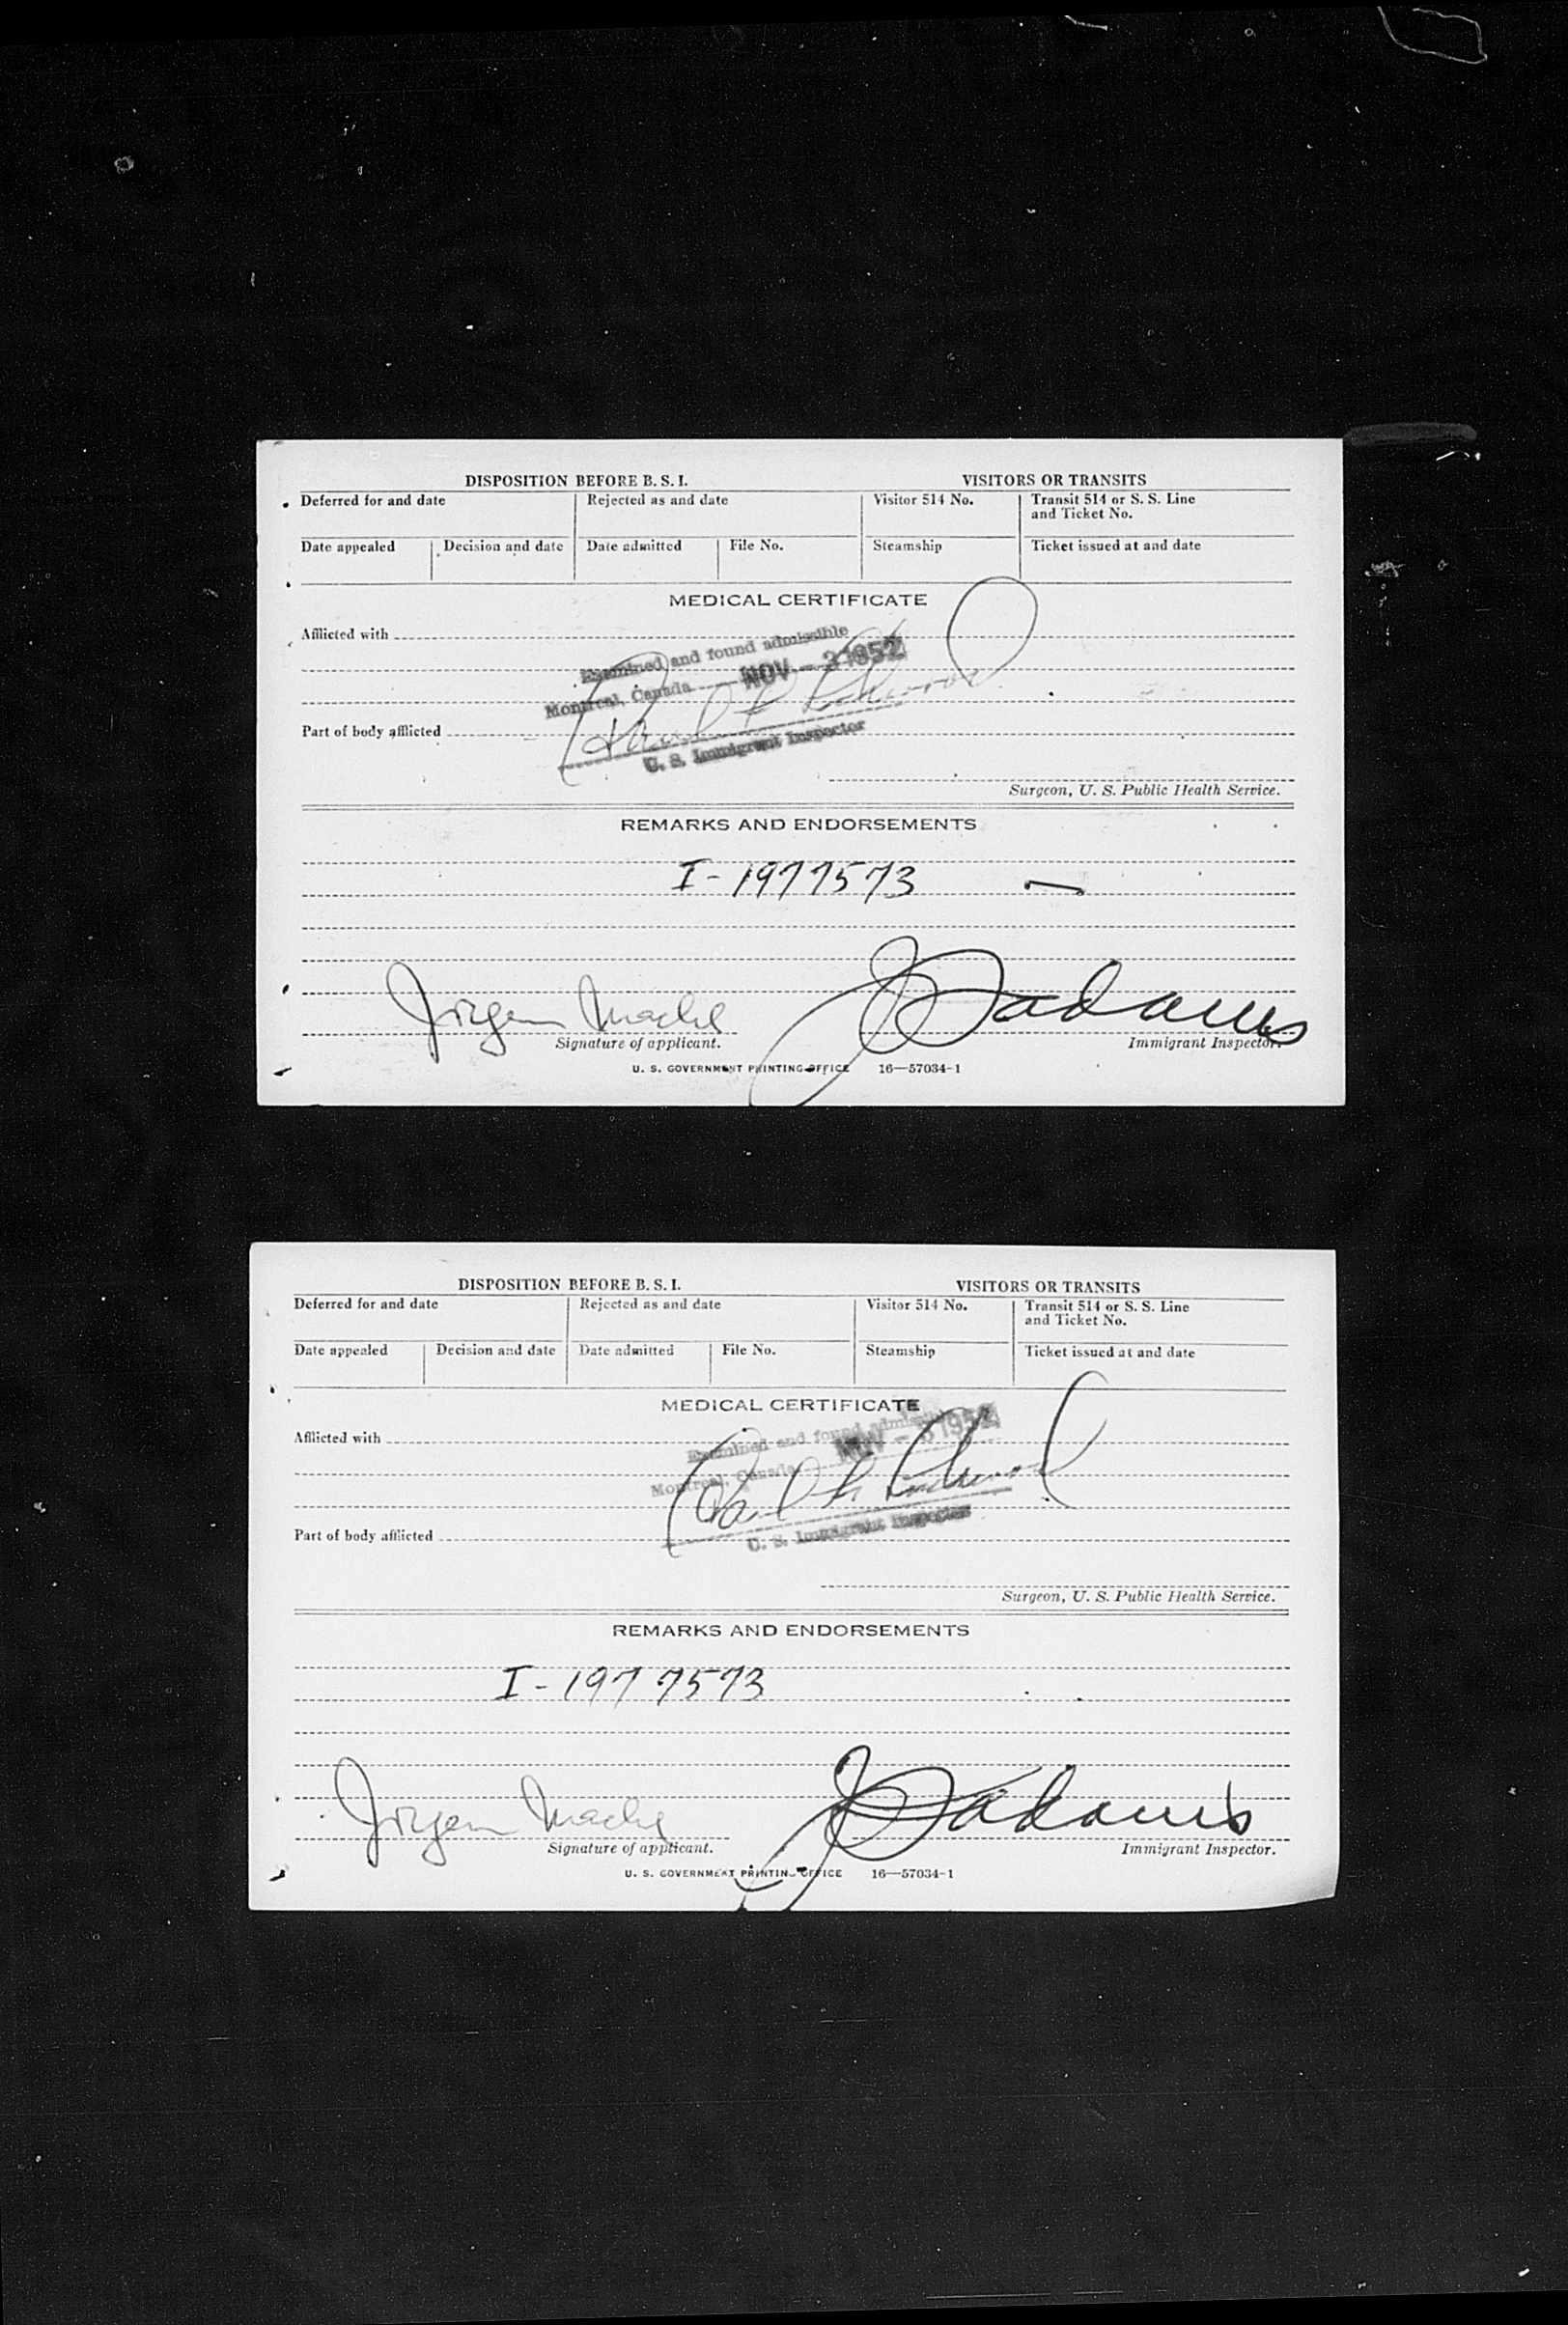 DISPOSITION BEFORE B. S. I. VISITORS OR TRANSITS
Deferred for and date Rejected as and date Visitor 514 No. Transit 514 or S. S. Line
and Ticket No.
Date appealed Decision and date Date admitted File No. Steamship Ticket issued at and date
MEDICAL CERTIFICATE
Afflicted with
Examined and found admissible
Montreal, Canada NOV - 3 1952
U. S. Immigrant Inspector
Part of body afflicted
Surgeon, U. S. Public Health Service.
REMARKS AND ENDORSEMENTS
I - 1977573
Jörgen adams
Signature of applicant. Immigrant Inspector.
U. S. GOVERNMENT PRINTING OFFICE 16—57034-1
DISPOSITION BEFORE B. S. I. VISITORS OR TRANSITS
Deferred for and date Rejected as and date Visitor 514 No. Transit 514 or S. S. Line
and Ticket No.
Date appealed Decision and date Date admitted File No. Steamship Ticket issued at and date
MEDICAL CERTIFICATE
Afflicted with
Examined and found admissible
Montreal, Canada NOV - 3 1952
U. S. Immigrant Inspector
Part of body afflicted
Surgeon, U. S. Public Health Service.
REMARKS AND ENDORSEMENTS
I - 197 7573
Jörgen adams
Signature of applicant. Immigrant Inspector.
U. S. GOVERNMENT PRINTING OFFICE 16—57034-1